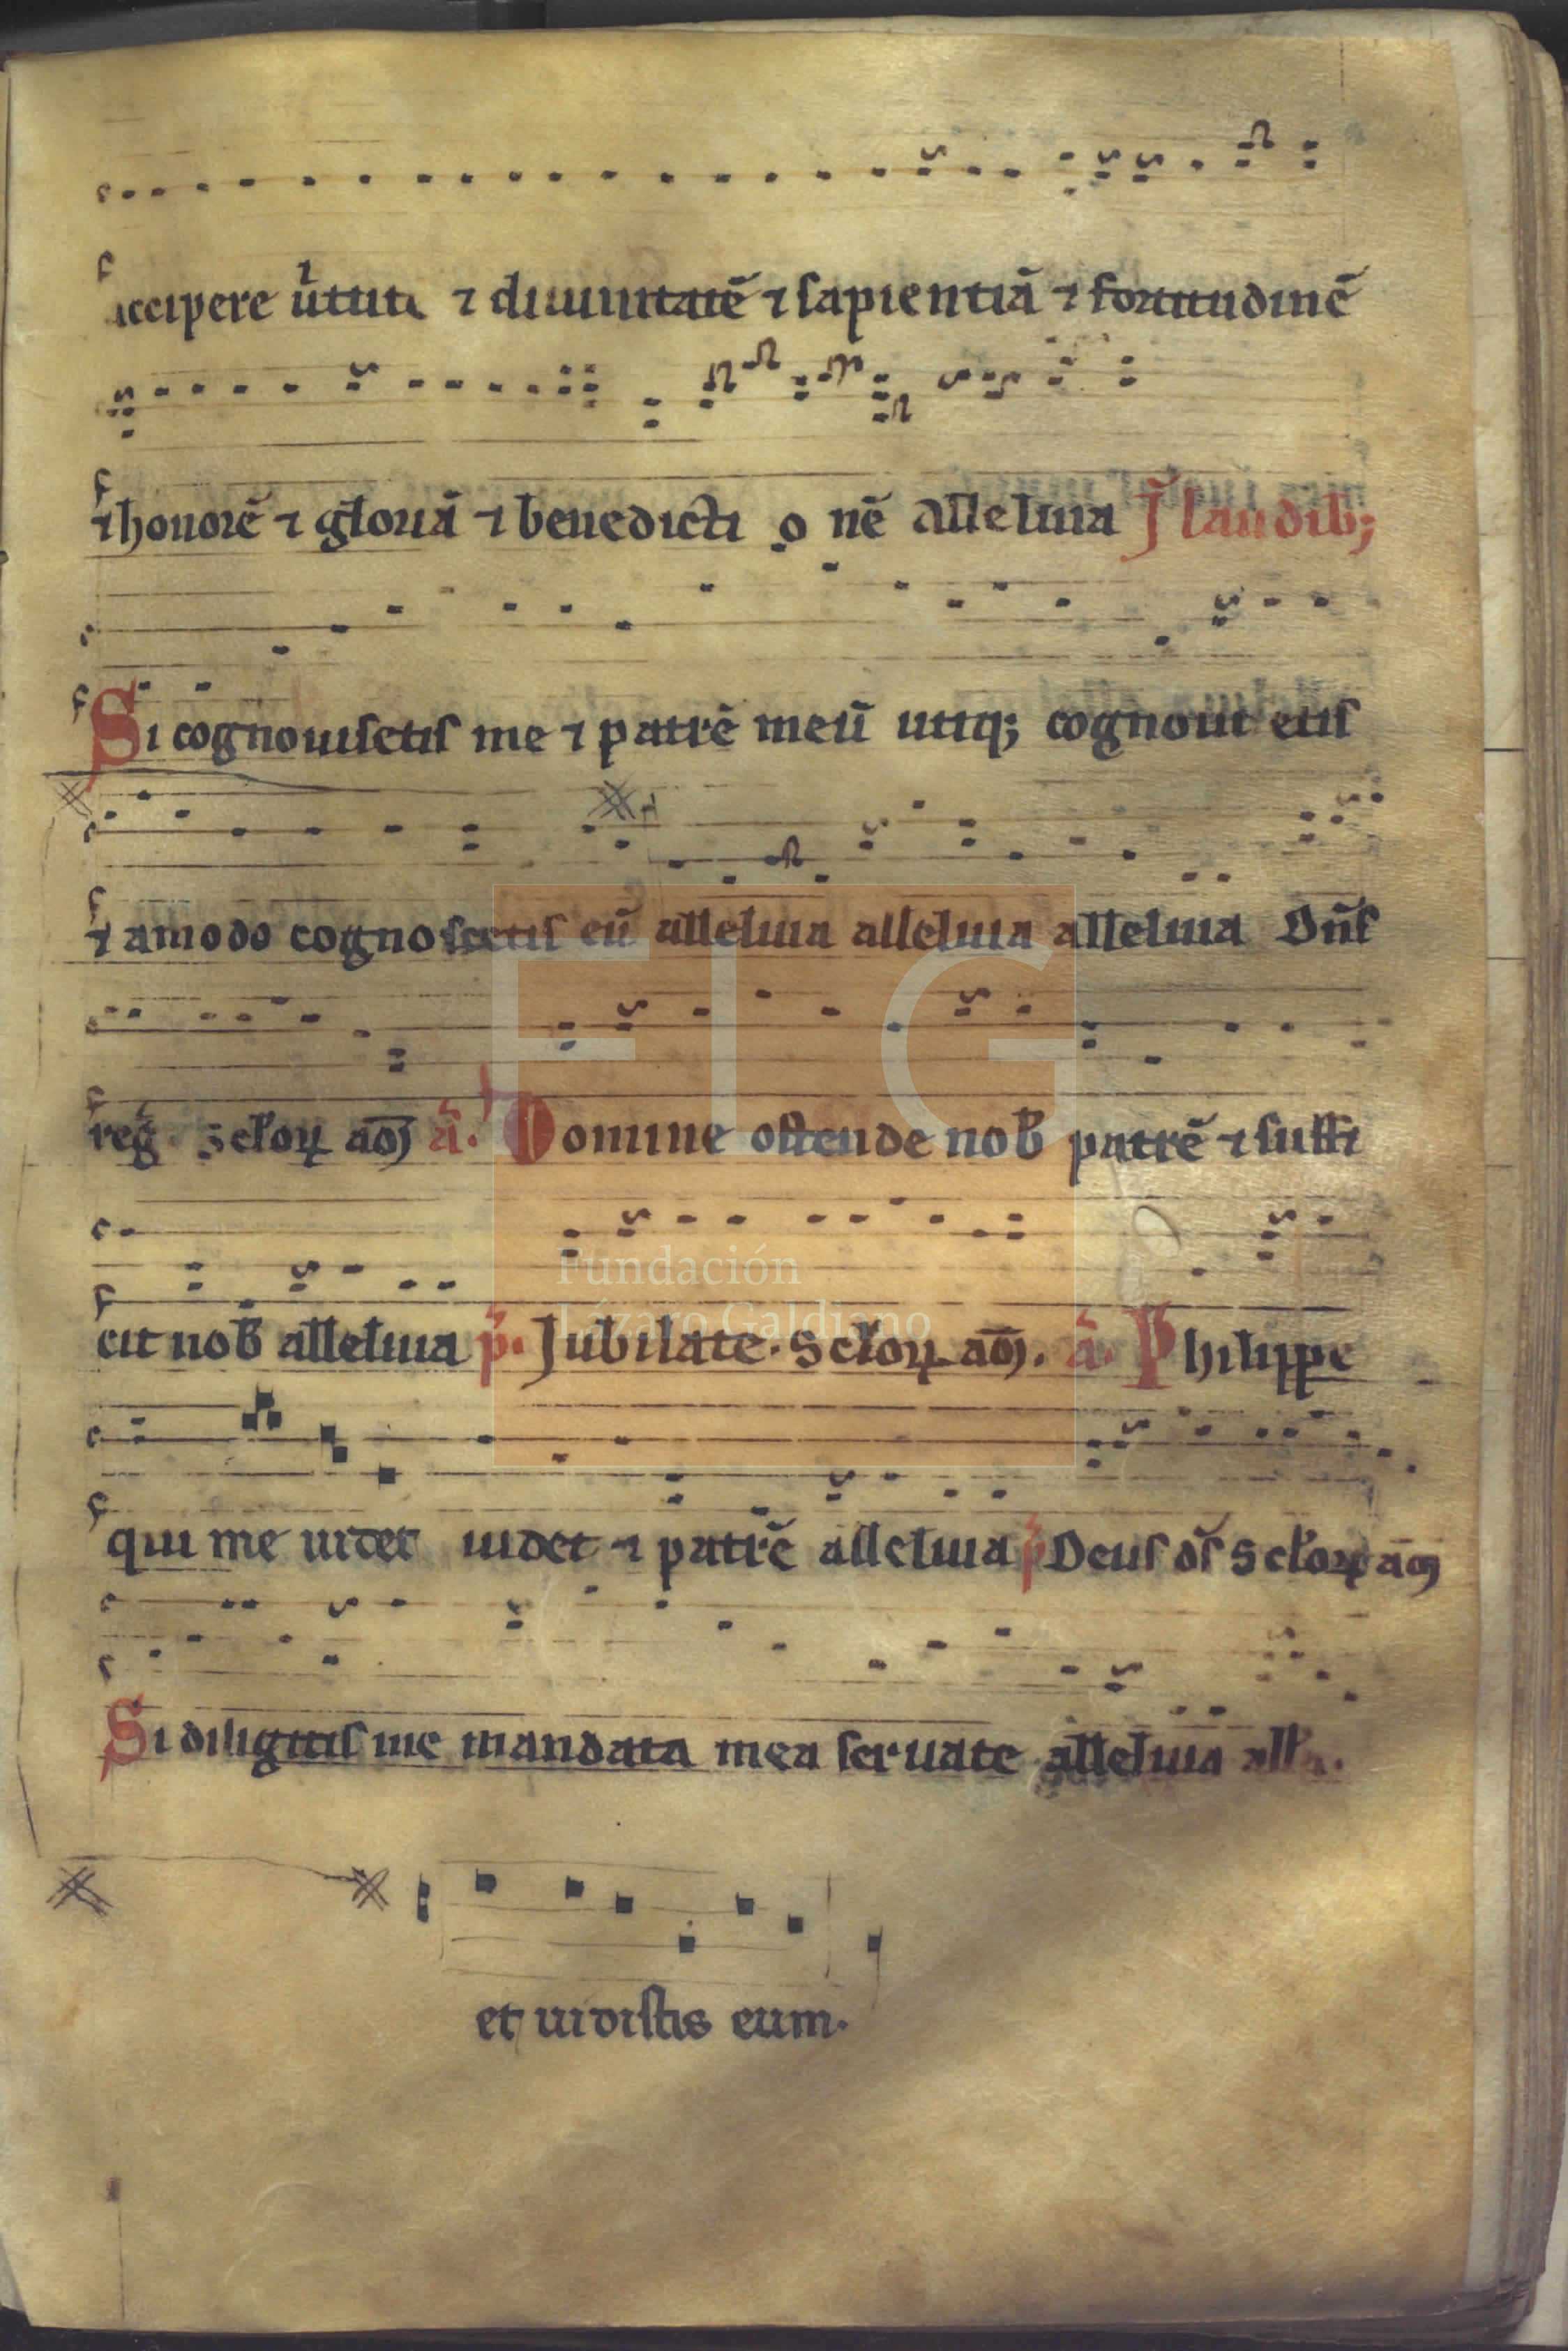 accipere u̅tute ⁊ diuinitatē ⁊ sapientiā ⁊ fortitudinē
⁊ honorē ⁊ głoriā ⁊ benedicti o nē Alleluia J̄ laudib;
Si cognouisetis me ⁊ patrē meū utiq; cognouit etis
⁊ amodo cognoscetis eū alleluia alleluia alleluia Dn̄s
reg̅. scłoꝝ ao̅ꝫ a̅. Domine ostende nob̅ patrē ⁊ suffi
cit nob̅ alleluia p̅. Jubilate. scłoꝝ ao̅ꝫ. a̅. Philippe
qui me uidet uidet ⁊ patrē alleluia p̅ Deus ds̅ scłoꝝ ao̅ꝫ
Si diligitis me mandata mea seruate alleluia alła.
et uidistis eum.
FLG
Fundación
Lázaro Galdiano